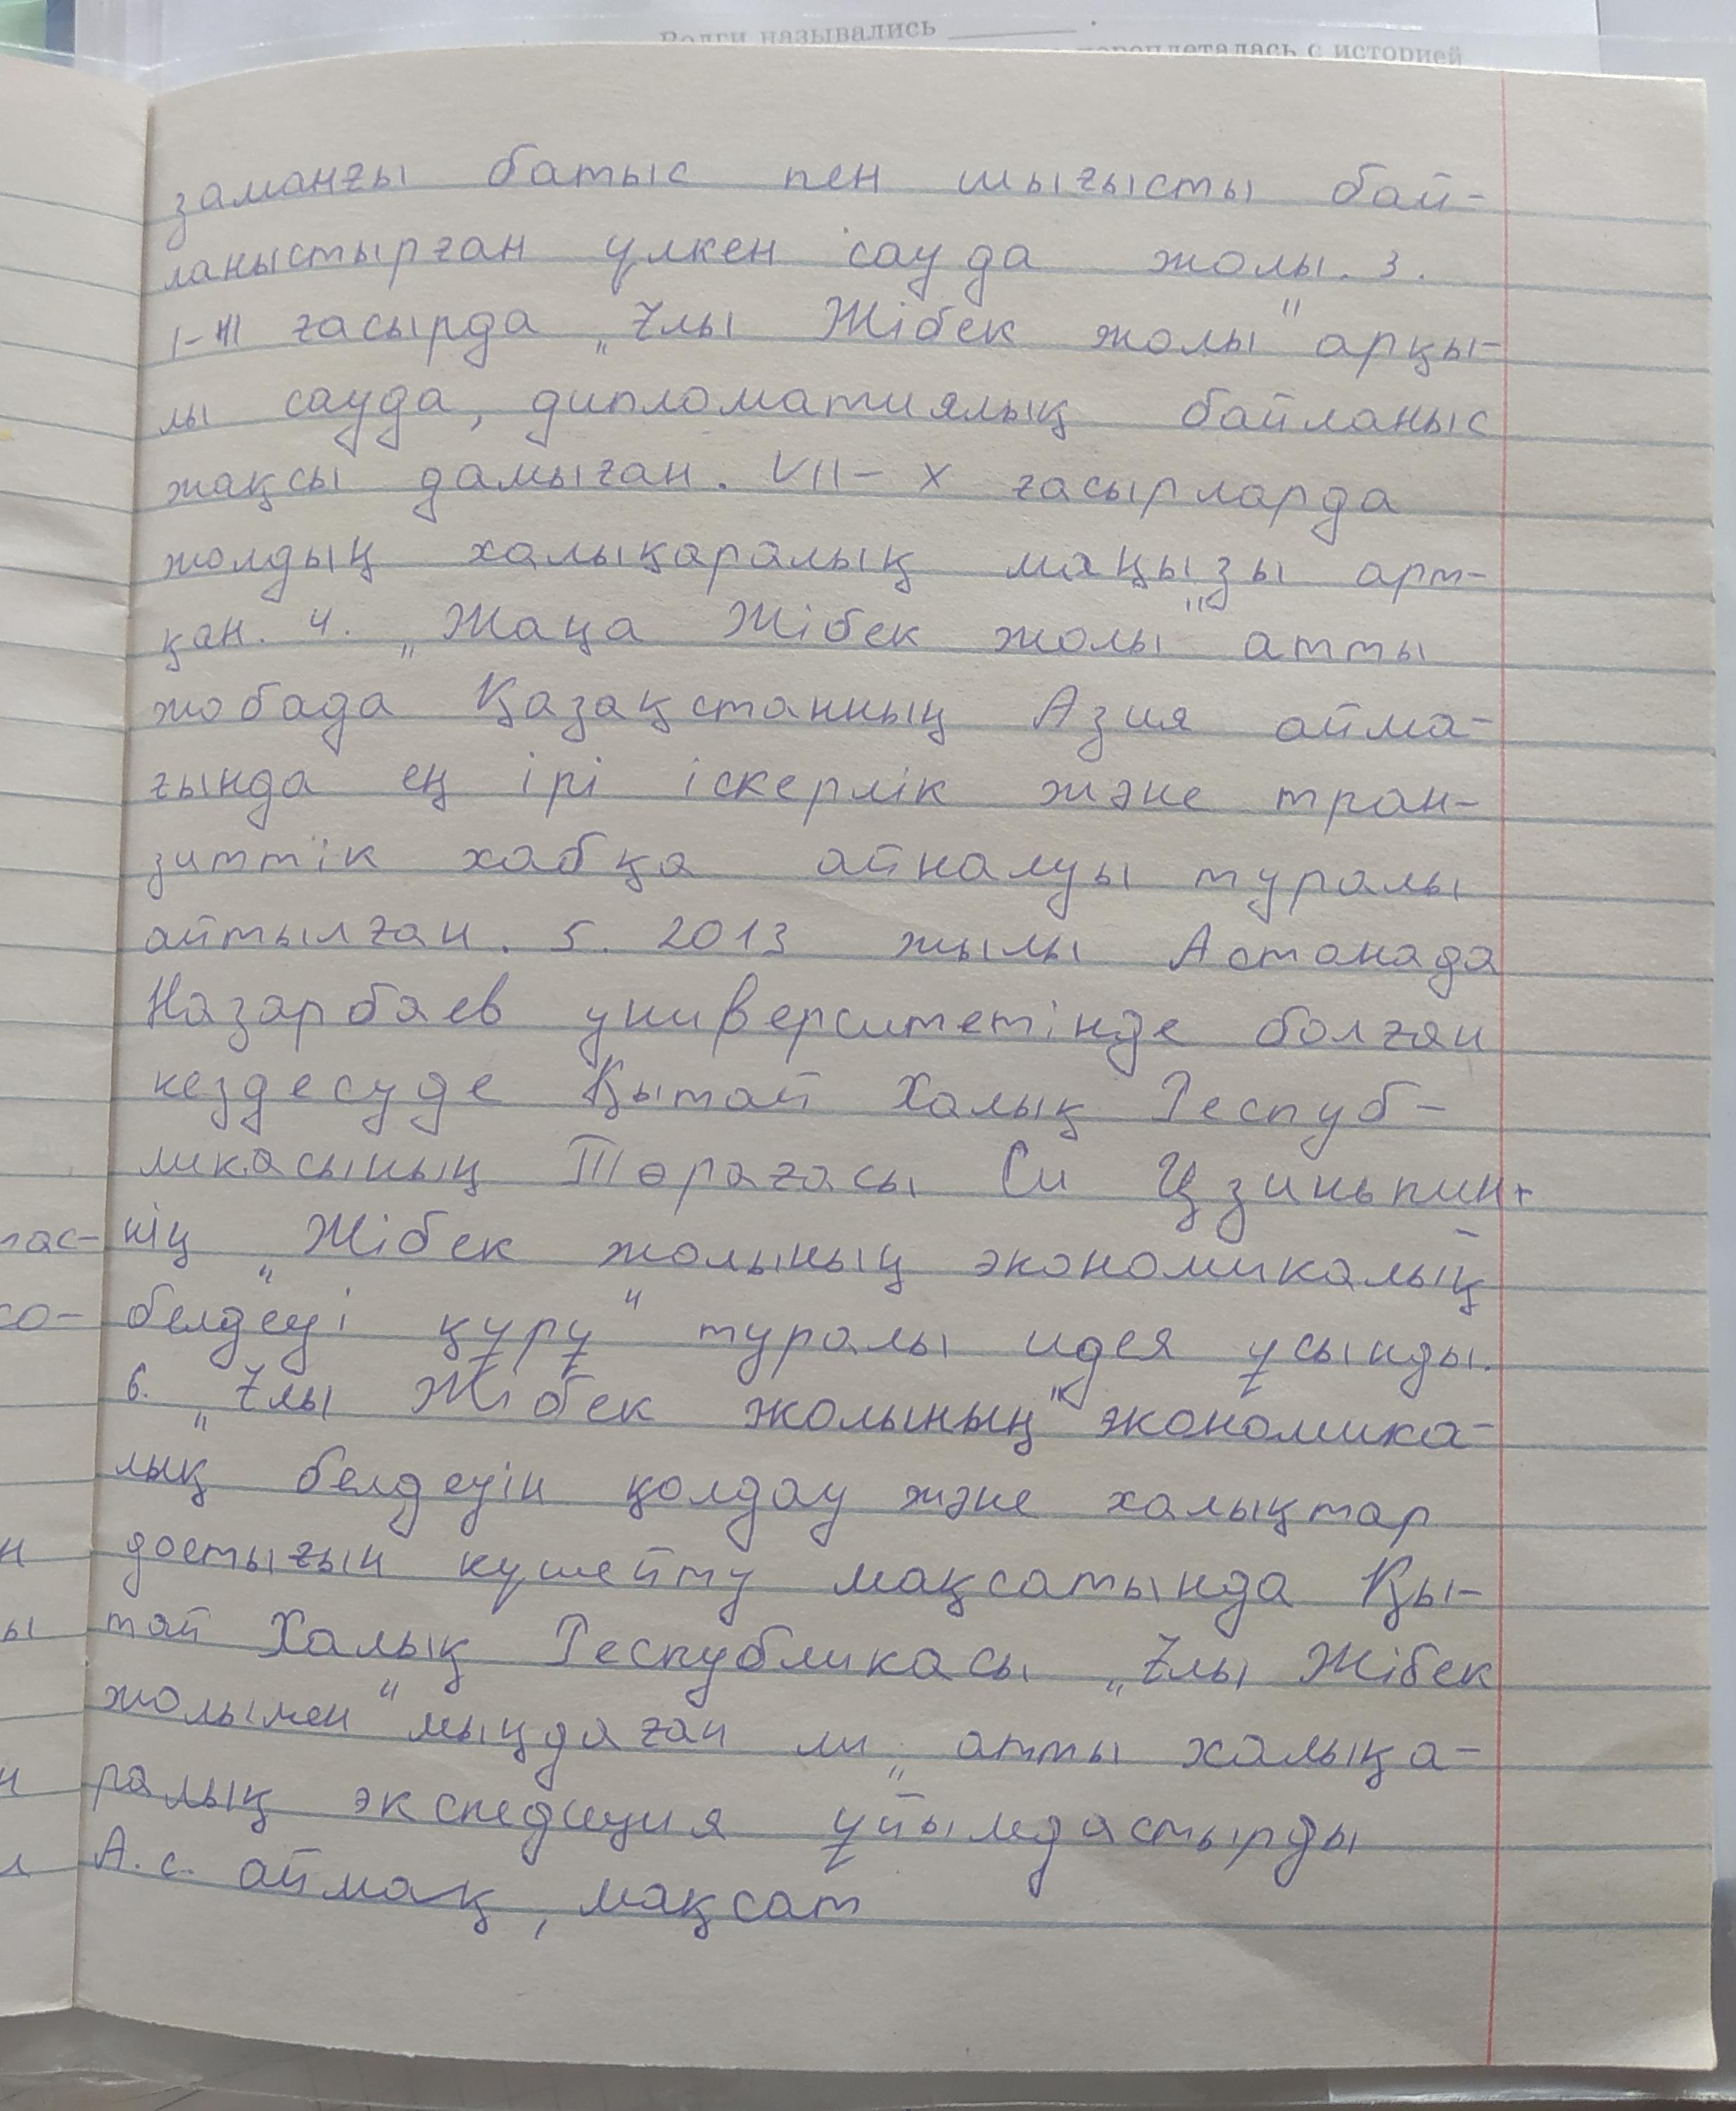 Волги назывались
переплеталась с историей
заманғы батыс пен шығысты бай-
ланыстырған үлкен сауда жолы. 3.
I-III ғасырда „Ұлы Жібек жолы" арқы-
лы сауда, дипломатиялық байланыс
жақсы дамыған. VII - X ғасырларда
жолдың халықаралық маңызы арт-
қан. 4. „Жаңа Жібек жолы" атты
жобада Қазақстанның Азия айма-
ғында ең ірі іскерлік және тран-
зиттік хабқа айналуы туралы
айтылған. 5. 2013 жылы Астанада
Назарбаев университетінде болған
кездесуде Қытай Халық Респуб-
ликасының Төрағасы Си Цзиньпин-
нің „Жібек жолының экономикалық
белдеуі құру" туралы идея ұсынды.
6. „Ұлы Жібек жолының" экономика-
лық белдеуін қолдау және халықтар
достығын күшейту мақсатында Қы-
тай Халық Республикасы „Ұлы Жібек
жолымен" мыңдаған ли„ атты халықа-
ралық экспедиция ұйымдастырды
А.с. аймақ, мақсат